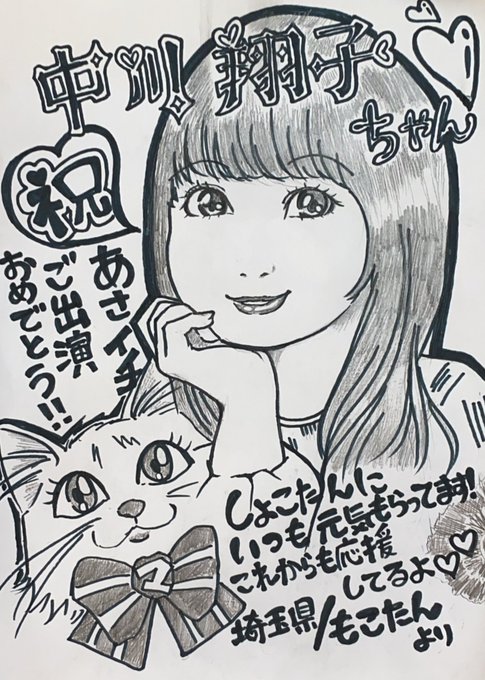 中川翔子
ちゃん
祝
あさイチ
ご出演
おめでとう!!
しょこたんに
いつも元気もらってます!
これからも応援
してるよ♡♡
埼玉県/もこたん
より